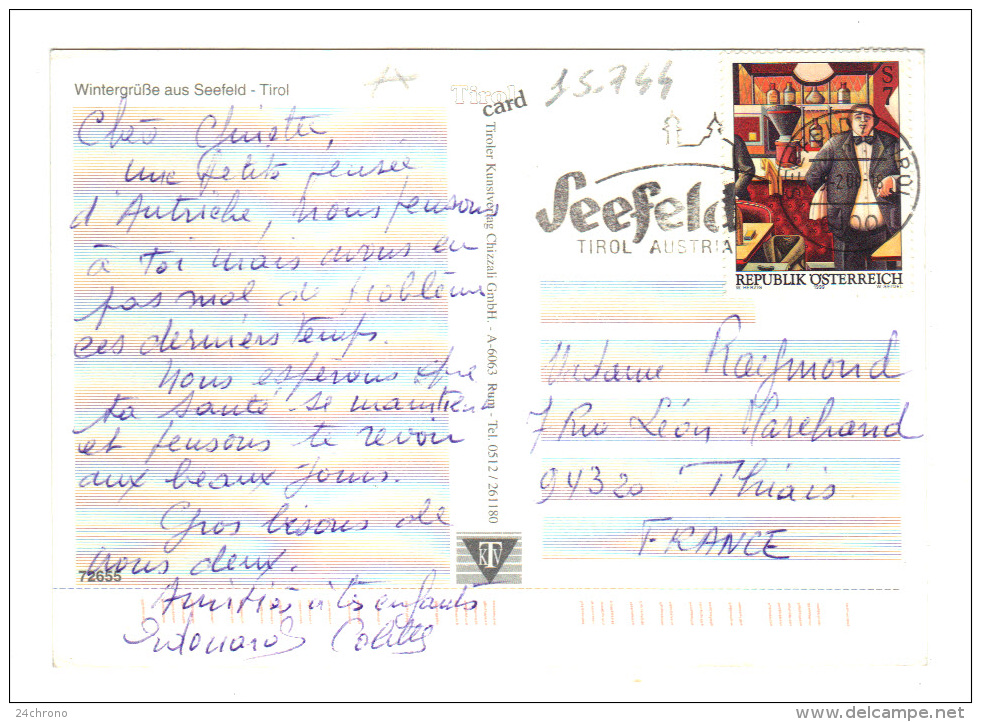 Wintergrüße aus Seefeld - Tirol
une petite pensée
d'Autriche, nous pensons
à toi mais avons eu
pas mal de problème
ces derniers temps.
Nous espérons que
ta santé se maintient
et pensons te revoir
aux beaux jours.
Gros bisous de
nous deux.
72655
Amitiés à tes enfants
Tirol
card
Tiroler Kunstverlag Chizzali GmbH. - A-6063 Rum - Tel. 0512 / 261180
KTV
15.744
Seefeld
TIROL AUSTRIA
S 7
REPUBLIK ÖSTERREICH
1999
Madame Raymond
7 Rue Léon Marchand
94320 Thiais
FRANCE
24chrono
www.delcampe.net